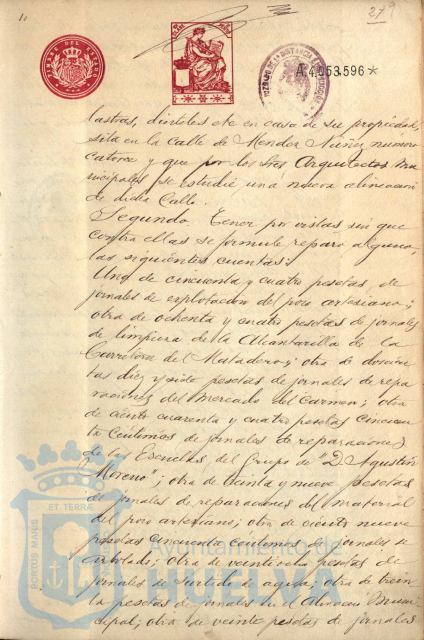 10
279
TIMBRE DEL ESTADO
A.4,053,596*
lastras, dinteles etc en casa de su propiedad,
sita en la calle de Mendez Nuñez numero
catorce y que por los Sres Arquitectos Mu-
nicipales se estudie una nueva alineacion
de dicha Calle.
Segundo. Tener por vistas sin que
contra ellas se formule reparo alguno,
las siguientes cuentas:
Una de cincuenta y cuatro pesetas, de
jornales de explotacion del pozo artesiano;
otra de ochenta y cuatro pesetas de jornales
de limpieza de la Alcantarilla de la
Carretera del Matadero; otra de doscien
tas diez y siete pesetas de jornales de repa
raciones del Mercado del Carmen; otra
de ciento cuarenta y cuatro pesetas cincuen
ta centimos de jornales de reparaciones
de las Escuelas del Grupo de "D. Agustin
Moreno"; otra de treinta y nueve pesetas
de jornales de reparaciones del material
del pozo artesiano; otra de ciento nueve
pesetas cincuenta centimos de jornales de
arbolado; otra de veintiocho pesetas de
jornales de surtido de agua; otra de trein
ta pesetas de jornales en el Almacen Muni
cipal; otra de veinte pesetas de jornales
PORTUS MARIS
ET TERRÆ
Ayuntamiento de
HUELVA